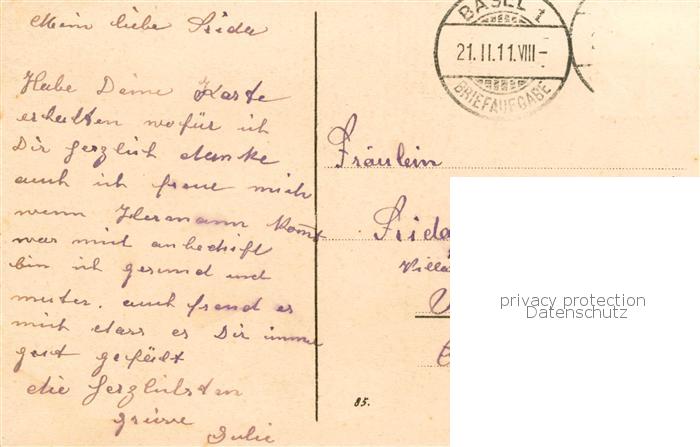 Mein liebe Frida
Habe Deine Karte
erhalten wofür ich
Dir herzlich danke
auch ich freue mich
wenn Hermann komt
was mich anbedrift
bin ich gesund und
muter. auch freud es
mich dass es Dir immer
gut gefält
die herzlichsten
Grüsse
Julie
BASEL 1
21.II.11.VIII-
BRIEFAUFGABE
Fräulein
Frida
Villa
85.
privacy protection
Datenschutz